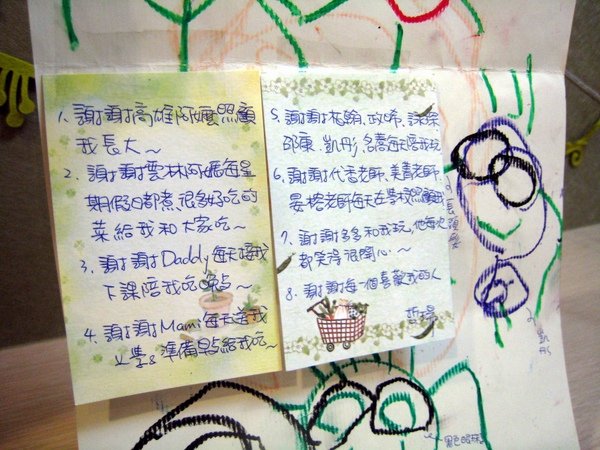 1. 謝謝高雄阿嬤照顧
我長大~
2. 謝謝雲林阿嬤每星
期假日都煮很多好吃的
菜給我和大家吃~
3. 謝謝Daddy每天接我
下課陪我吃早點~
4. 謝謝Mami每天送我
上學&準備早點給我吃~
5. 謝謝 翰、政晞、
邵康、凱彤、每天陪我玩
6. 謝謝代香老師、美書老師、
晏榕老師每天在學校照顧我
7. 謝謝多多和我玩,他每次
都笑得很開心~
8. 謝謝每一個喜歡我的人
哲
長頸鹿
凱彤
黑色眼珠